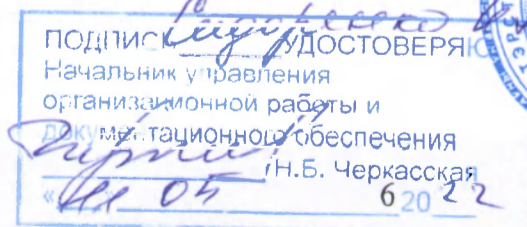 ПОДПИСЬ УДОСТОВЕРЯЮ
Начальник управления
организационной работы и
документационного обеспечения
Н.Б. Черкасская
«11 05 20 22